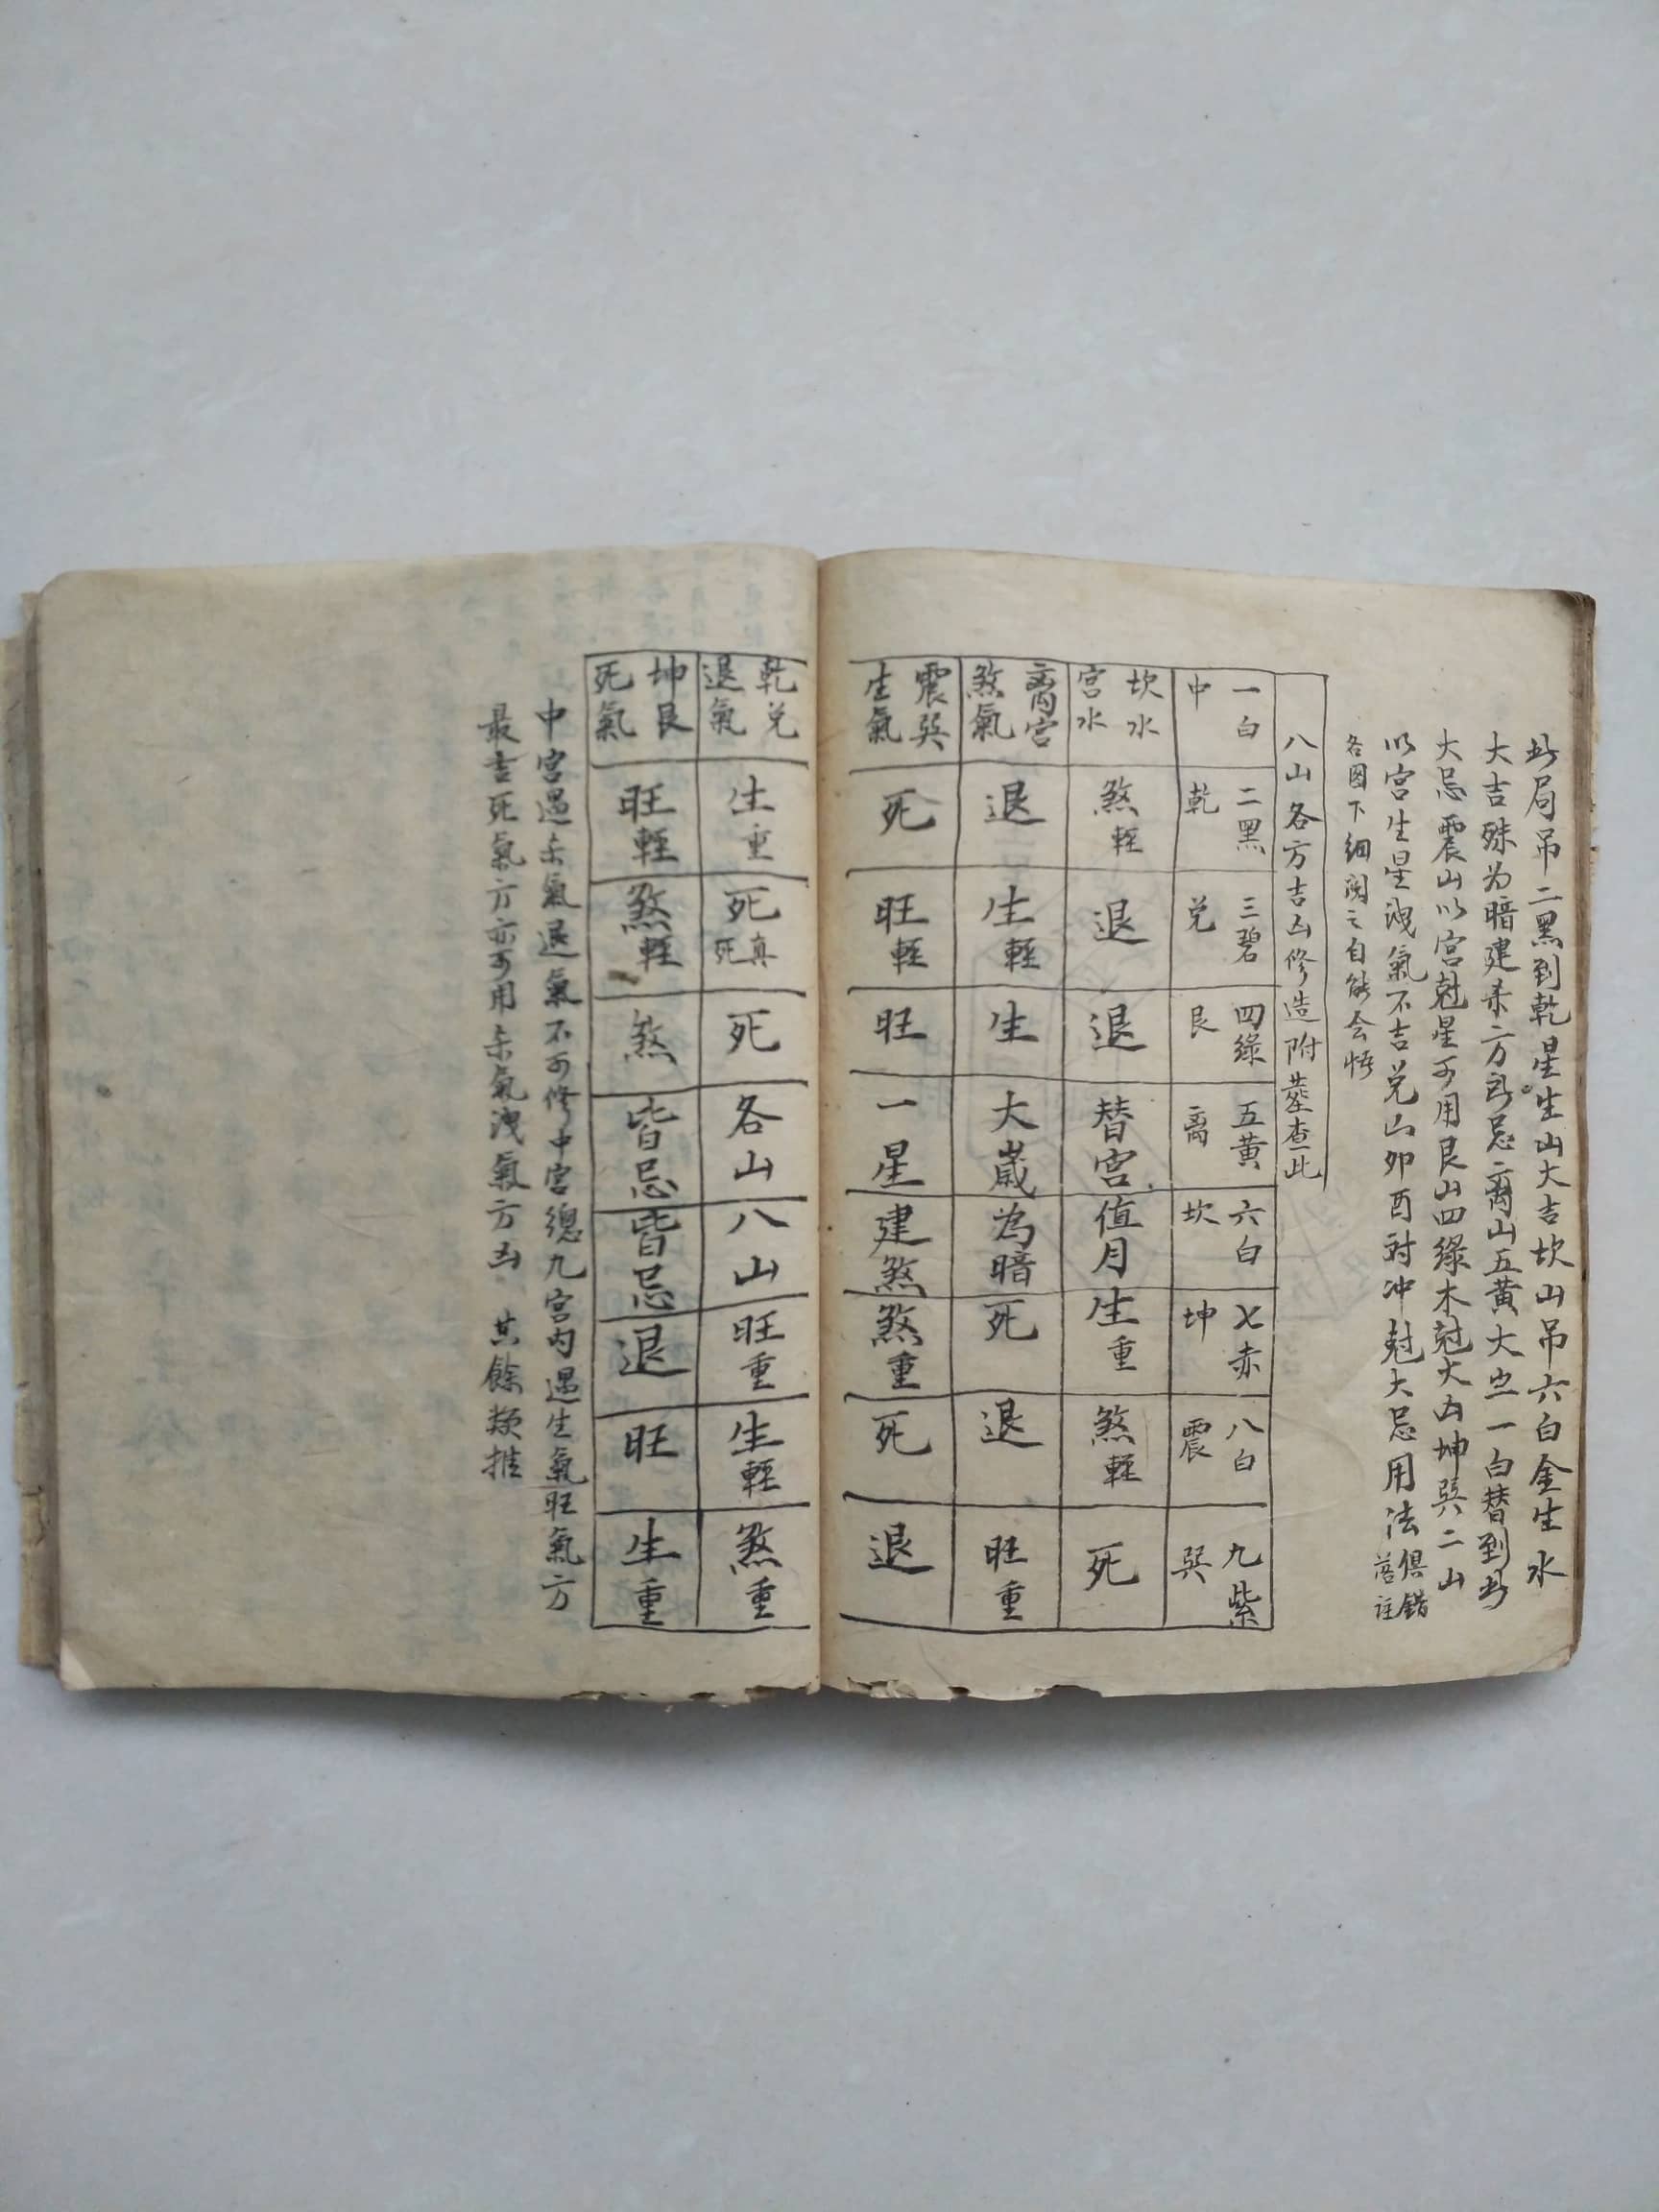 此局吊二黑到乾星生山大吉坎山吊六白金生水
大吉殊为暗建杀方所忌离山五黄大凶一白替到此
大忌震山以宫尅星可用艮山四綠木尅大凶坤巽二山
以宫生星洩氣不吉兑山卯酉对冲尅大忌用法俱錯
落註
各图下细阅之自能会悟
八山各方吉凶修造附塟查此
一白 二黑 三碧 四綠 五黄 六白 七赤 八白 九紫
中 乾 兑 艮 离 坎 坤 震 巽
坎水 煞輕 退 退 替宫 值月 生重 煞輕 死
宫水
离宫 退 生輕 生 大歲 為暗 死 退 旺重
煞氣
震巽 死 旺輕 旺 一星 建煞 煞重 死 退
生氣
乾兑 生重 死真死 死 各山 八山 旺重 生輕 煞重
退氣
坤艮 旺輕 煞輕 煞 皆忌 皆忌 退 旺 生重
死氣
中宫遇杀氣退氣不可修中宫總九宫内遇生氣旺氣方
最吉死氣方亦可用杀氣洩氣方凶 其餘類推